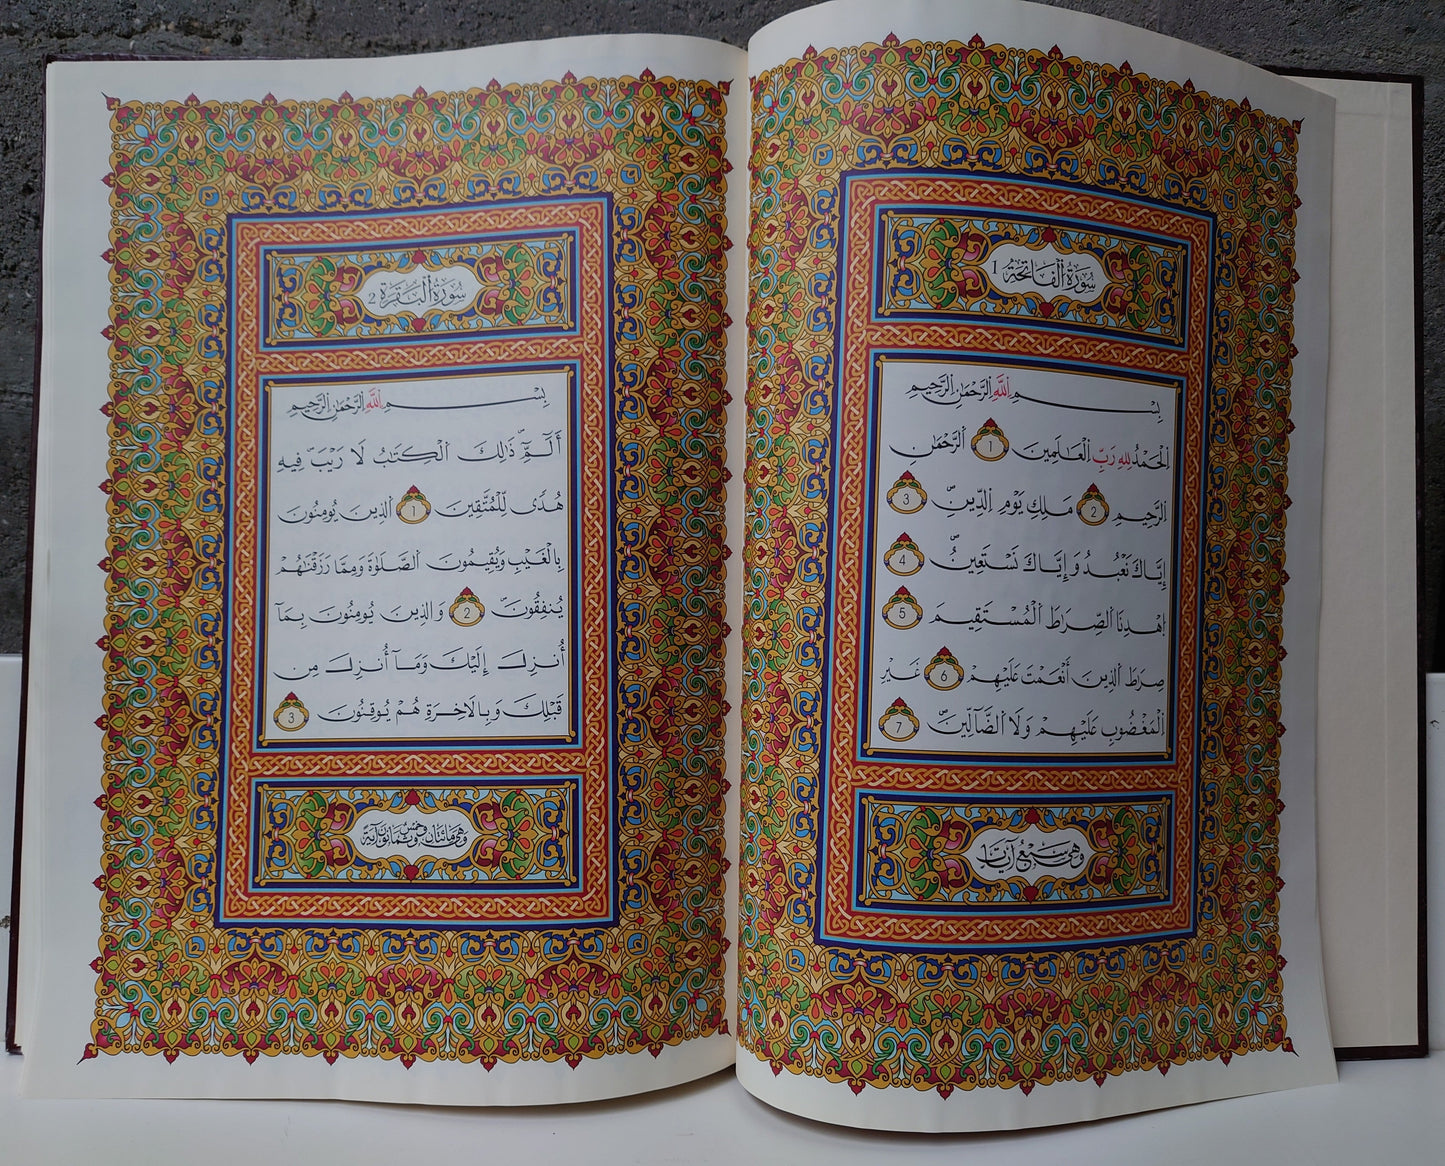 سُورَةُ اْلْفَاتِحَةِ 1
بِسْمِ اِ۬للَّهِ اِ۬لرَّحْمَٰنِ اِ۬لرَّحِيمِ
اِ۬لْحَمْدُ لِلهِ رَبِّ اِ۬لْعَٰلَمِينَ 1 اَ۬لرَّحْمَٰنِ
اِ۬لرَّحِيمِ 2 مَلِكِ يَوْمِ اِ۬لدِّينِۖ 3
إِيَّاكَ نَعْبُدُ وَإِيَّاكَ نَسْتَعِينُۖ 4
اُ۪هْدِنَا اَ۬لصِّرَٰطَ اَ۬لْمُسْتَقِيمَ 5
صِرَٰطَ اَ۬لذِينَ أَنْعَمْتَ عَلَيْهِمْ 6 غَيْرِ
اِ۬لْمَغْضُوبِ عَلَيْهِمْ وَلَا اَ۬لضَّآلِّينَۖ 7
وَهِيَ سَبْعُ آيَاتٍ
سُورَةُ اْلْبَقَرَةِ 2
بِسْمِ اِ۬للَّهِ اِ۬لرَّحْمَٰنِ اِ۬لرَّحِيمِ
أَلَٓمِّٓۖ ذَٰلِكَ اَ۬لْكِتَٰبُ لَا رَيْبَۖ فِيهِ
هُديٗ لِّلْمُتَّقِينَ 1 اَ۬لذِينَ يُومِنُونَ
بِالْغَيْبِ وَيُقِيمُونَ اَ۬لصَّلَوٰةَ وَمِمَّا رَزَقْنَٰهُمْ
يُنفِقُونَۖ 2 وَالذِينَ يُومِنُونَ بِمَآ
أُنزِلَ إِلَيْكَ وَمَآ أُنزِلَ مِن
قَبْلِكَ وَبِالَاخِرَةِ هُمْ يُوقِنُونَ 3
وَهِيَ مَائَتَانِ وَخَمْسٌ وَثَمَانُونَ آيَةً